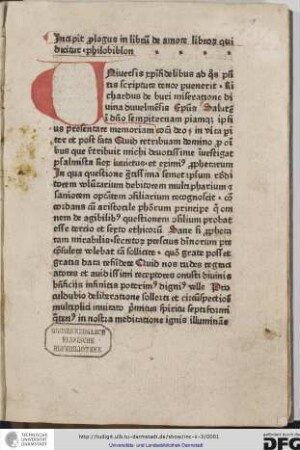 Incipit prologus in libru de amore libroru qui
dicitur philobiblon
Uniuersis xpifidelibus ad quos pntis
scripture tenor peruenerit Richardus
de buri miseratione diuina
dunelmensis Epus Salutem
in dno sempiternam piamqz ipsius
presentare memoriam cora deo in vita pariter
et post fata Quid retribuam domino pro omnibus
que retribuit michi deuotissime inuestigat
psalmista rex inuictus et eximius prophetarum
In qua questione
debitorem multipharium et
sanioris optantem consiliarium recognoscit concordans
cum aristotele phorum principe
omnem de agibilibus questionem consilium probat
esse tercio et sexto ethicorum Sane si propheta
tam mirabilis secretorum prescius diuinorum preconsulere
volebat tam sollicite quo grate posset
gratis data refundere Quid nos rudes regraciatores
et auidissimi receptores onusti diuinis
beneficiis infinitis poterimus digni velle Proculdubio
deliberatione sollerti et circumspectione
multiplici inuitato primitus spiritu septiformi
quatenus in nostra meditatione ignis illuminans
GROSSHERZOGLICH
HESSISCHE
HOFBIBLIOTHEK
TECHNISCHE
UNIVERSITÄT
DARMSTADT
http://tudigit.ulb.tu-darmstadt.de/show/inc-ii-3/0001
Universitäts- und Landesbibliothek Darmstadt
gefördert durch die
DFG